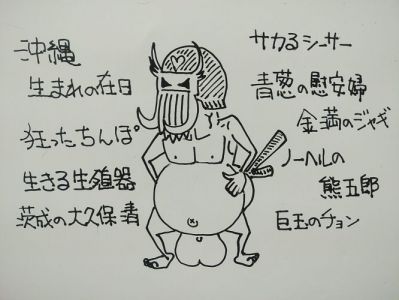 沖縄
生まれの在日
狂ったちんぽ
生きる生殖器
茨成の大久保清
サカるシーサー
青葱の慰安婦
金満のジャギ
ノーヘルの
熊五郎
巨玉のチョン